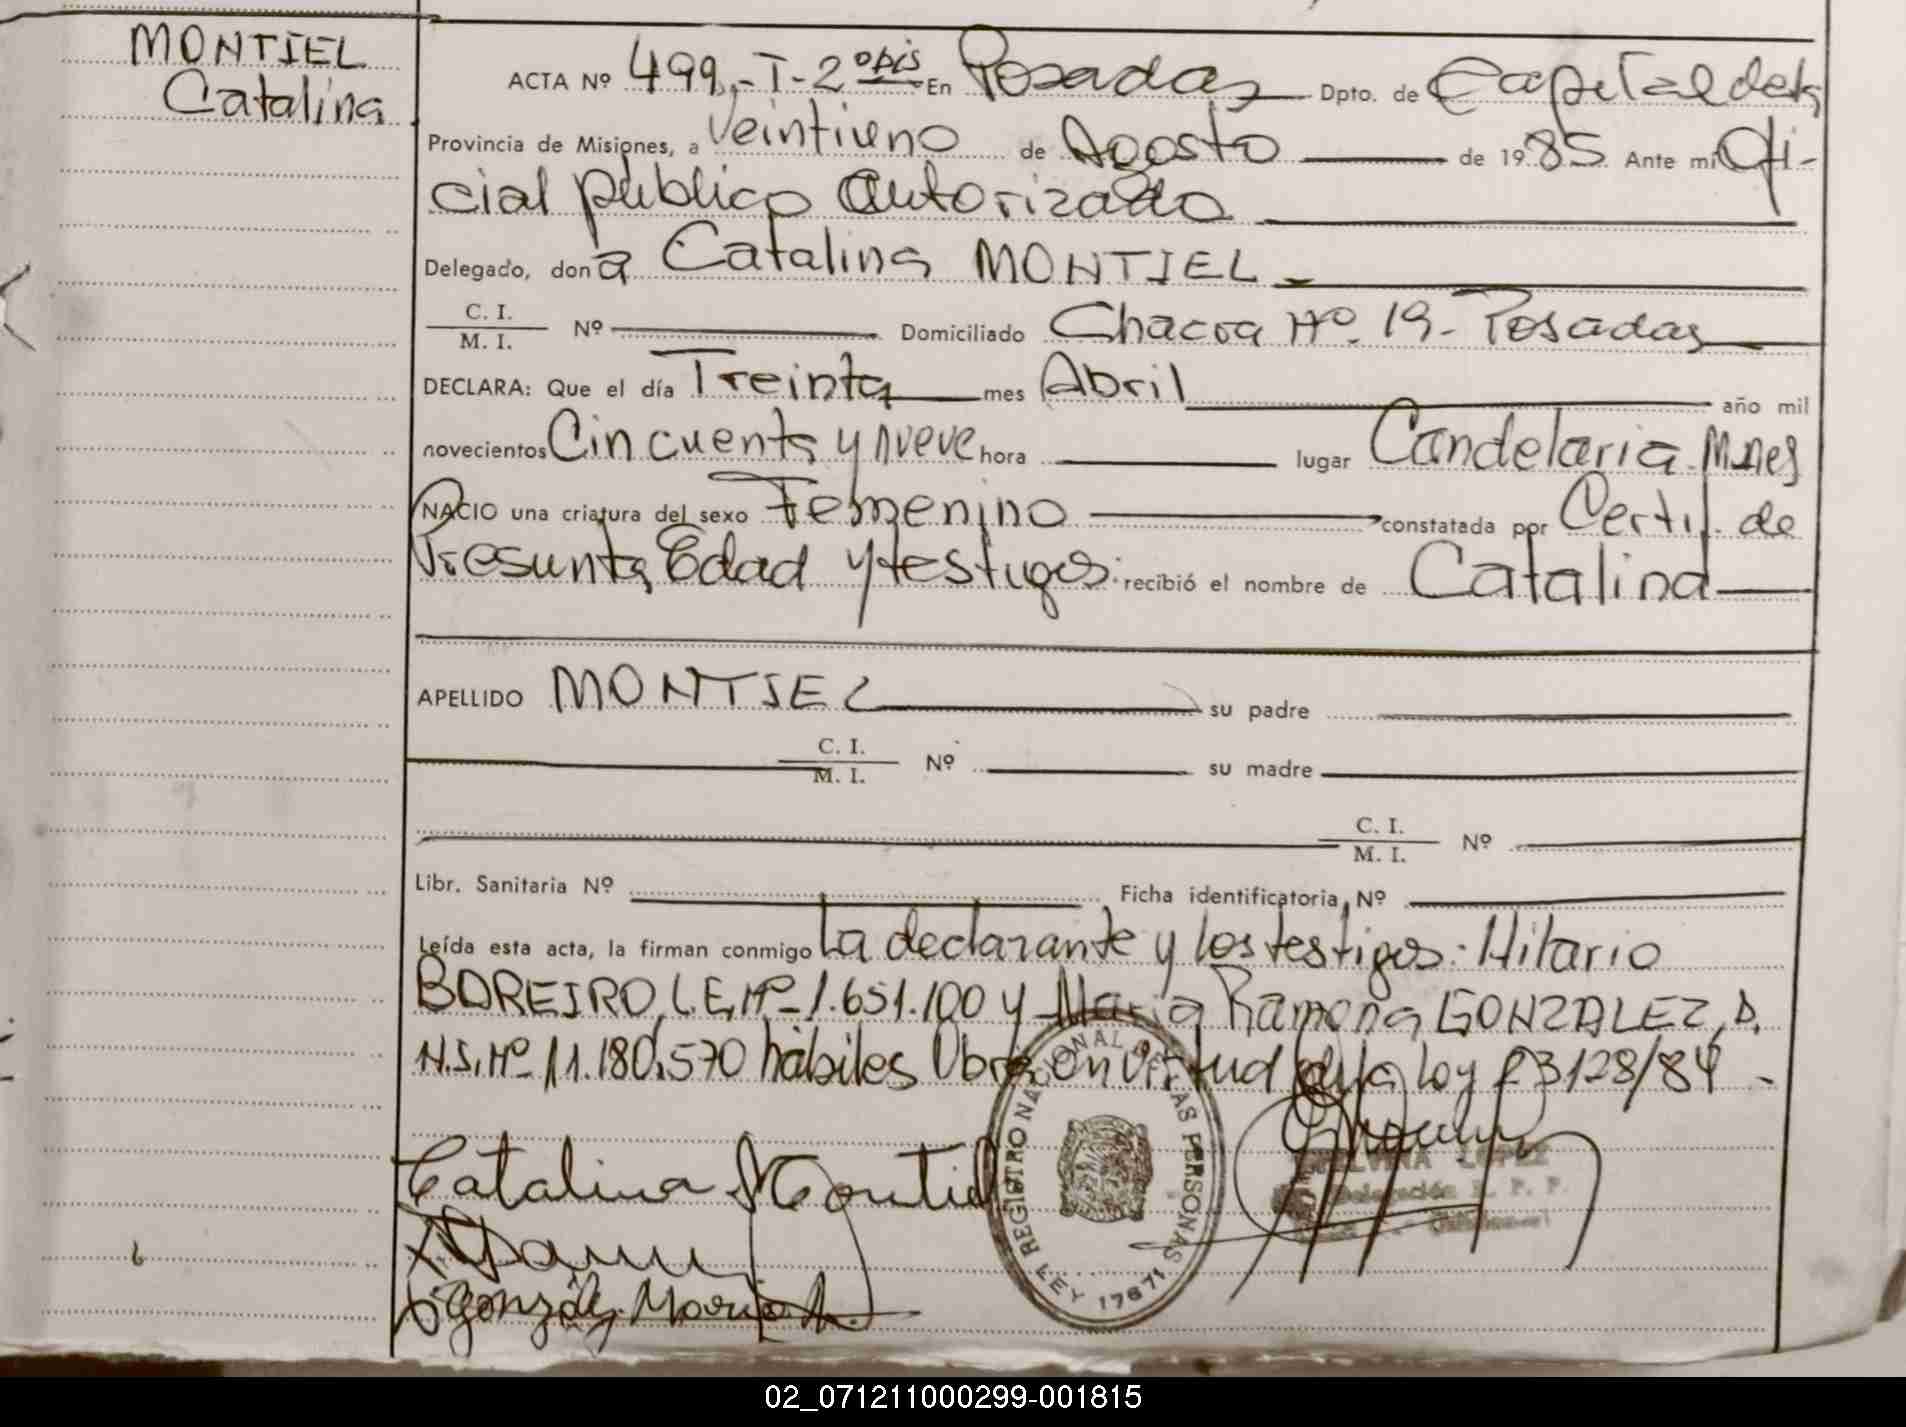 MONTIEL
Catalina
ACTA Nº 499,-T-2º bis En Posadas Dpto. de Capital de la
Provincia de Misiones, a Veintiuno de Agosto de 1985 Ante mi Ofi-
cial público autorizado
Delegado, doña Catalina MONTIEL.-
C. I.
M. I. Nº Domiciliado Chacra Nº. 19- Posadas
DECLARA: Que el día Treinta mes Abril año mil
novecientos Cincuenta y nueve hora lugar Candelaria Mnes
NACIO una criatura del sexo Femenino constatada por Certif. de
Presunta Edad y testigos. recibió el nombre de Catalina
APELLIDO MONTIEL su padre
C. I.
M. I. Nº su madre
C. I.
M. I. Nº
Libr. Sanitaria Nº Ficha identificatoria Nº
Leída esta acta, la firman conmigo la declarante y los testigos: Hilario
BOREIRO, L.E, Nº- 1.651.100 y María Ramona GONZALEZ, D.
N.I. Nº 11.180.570 hábiles Obra en Virtud de la Ley 23128/84 -
Catalina Montiel
Gonzalez Maria R.
REGISTRO NACIONAL DE LAS PERSONAS
LEY 17671
LOPEZ
Delegación R. P. P.
02_071211000299-001815